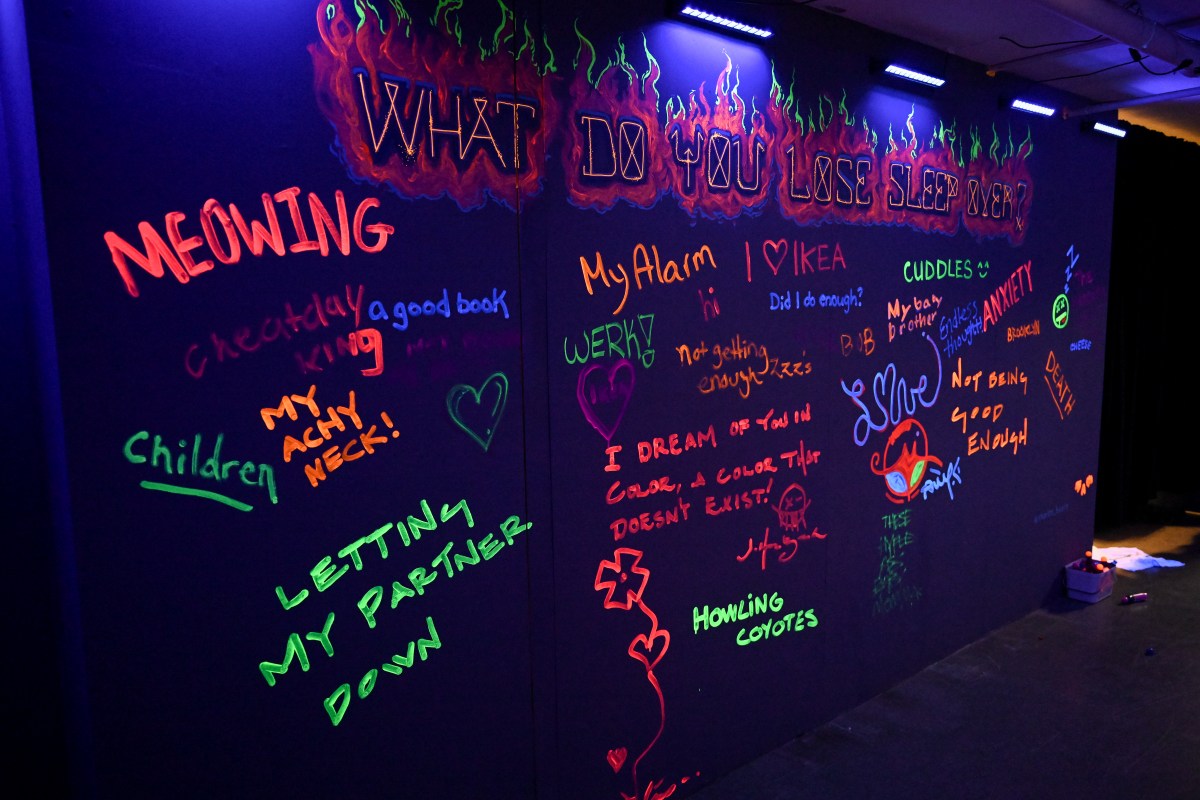 WHAT DO YOU LOSE SLEEP OVER?
MEOWING
cheatday
a good book
King
MY
ACHY
NECK!
Children
LETTING
MY PARTNER
DOWN
My Alarm
hi
I ♡ IKEA
WERK!
not getting
enough zzz's
Did I do enough?
I DREAM OF YOU IN
COLOR, A COLOR THAT
DOESN'T EXIST!
HOWLING
COYOTES
CUDDLES
My baby
brother
BOB
Endless
thoughts
ANXIETY
BROOKLYN
zzz
CHEESE
DEATH
Love
NOT BEING
GOOD
ENOUGH
THESE